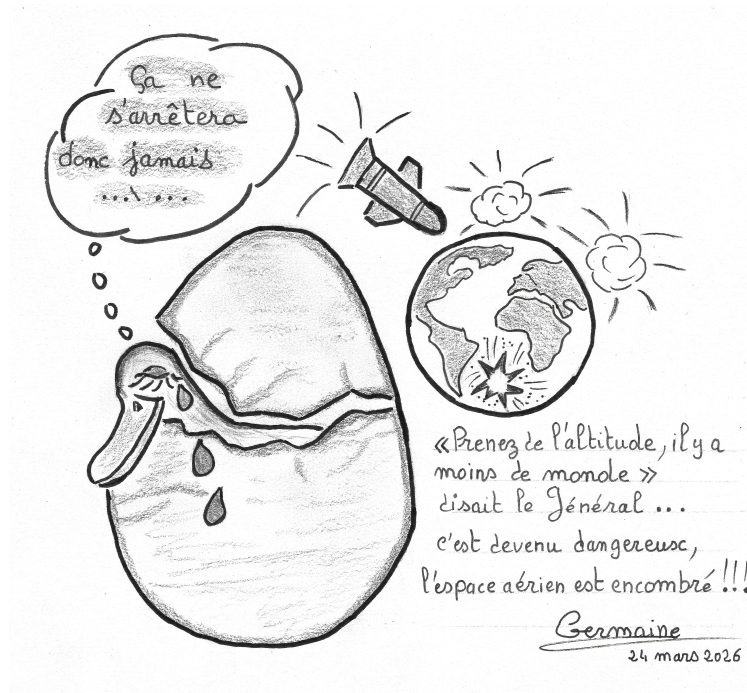 Ça ne
s'arrêtera
donc jamais
...\ ...
«Prenez de l'altitude, il y a
moins de monde »
disait le Général ...
c'est devenu dangereux,
l'espace aérien est encombré !!!
Germaine
24 mars 2026